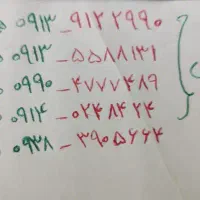 ۰۹۱۳_۹۱۲۲۹۹۰
۰۹۱۳_۵۵۸۸۱۳۱
۰۹۹۰_۴۷۷۷۴۸۹
۰۹۱۴_۰۲۴۸۴۲۴
۰۹۳۸_۳۹۰۵۶۶۴